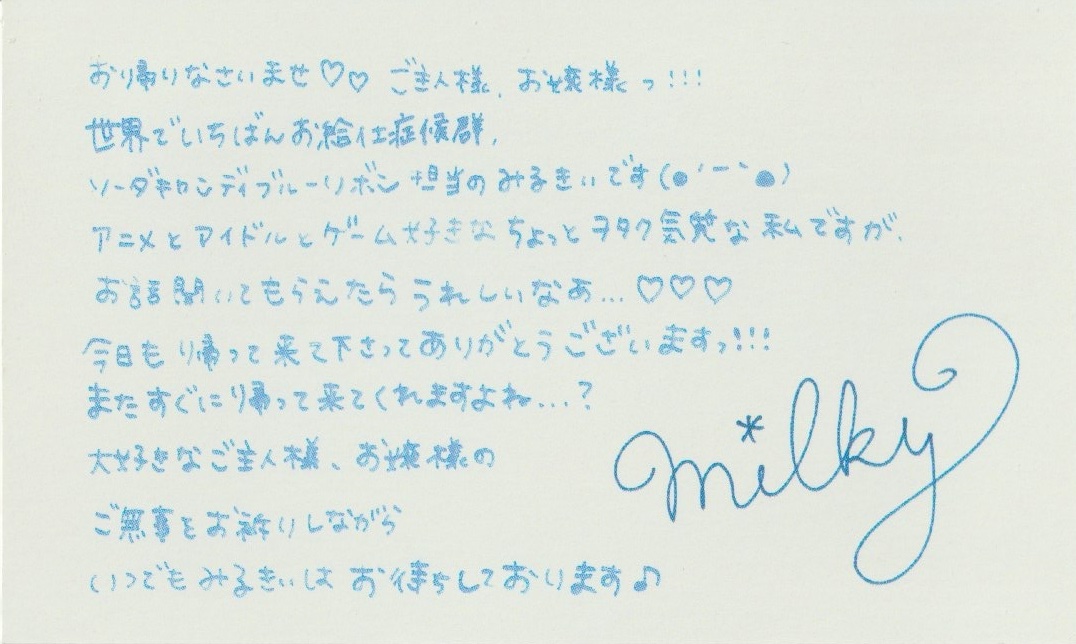 お帰りなさいませ♡♡ ご主人様、お嬢様っ!!!
世界でいちばんお給仕症候群、
ソーダキャンディブルーリボン担当のみるきぃです(●´ー`●)
アニメとアイドルとゲーム好きなちょっとヲタク気質な私ですが、
お話聞いてもらえたらうれしいなあ...♡♡♡
今日もり帰って来て下さってありがとうございますっ!!!
またすぐに帰って来てくれますよね...?
大好きなご主人様、お嬢様の
ご無事をお祈りしながら
いつでもみるきぃはお待ちしております♪
milky